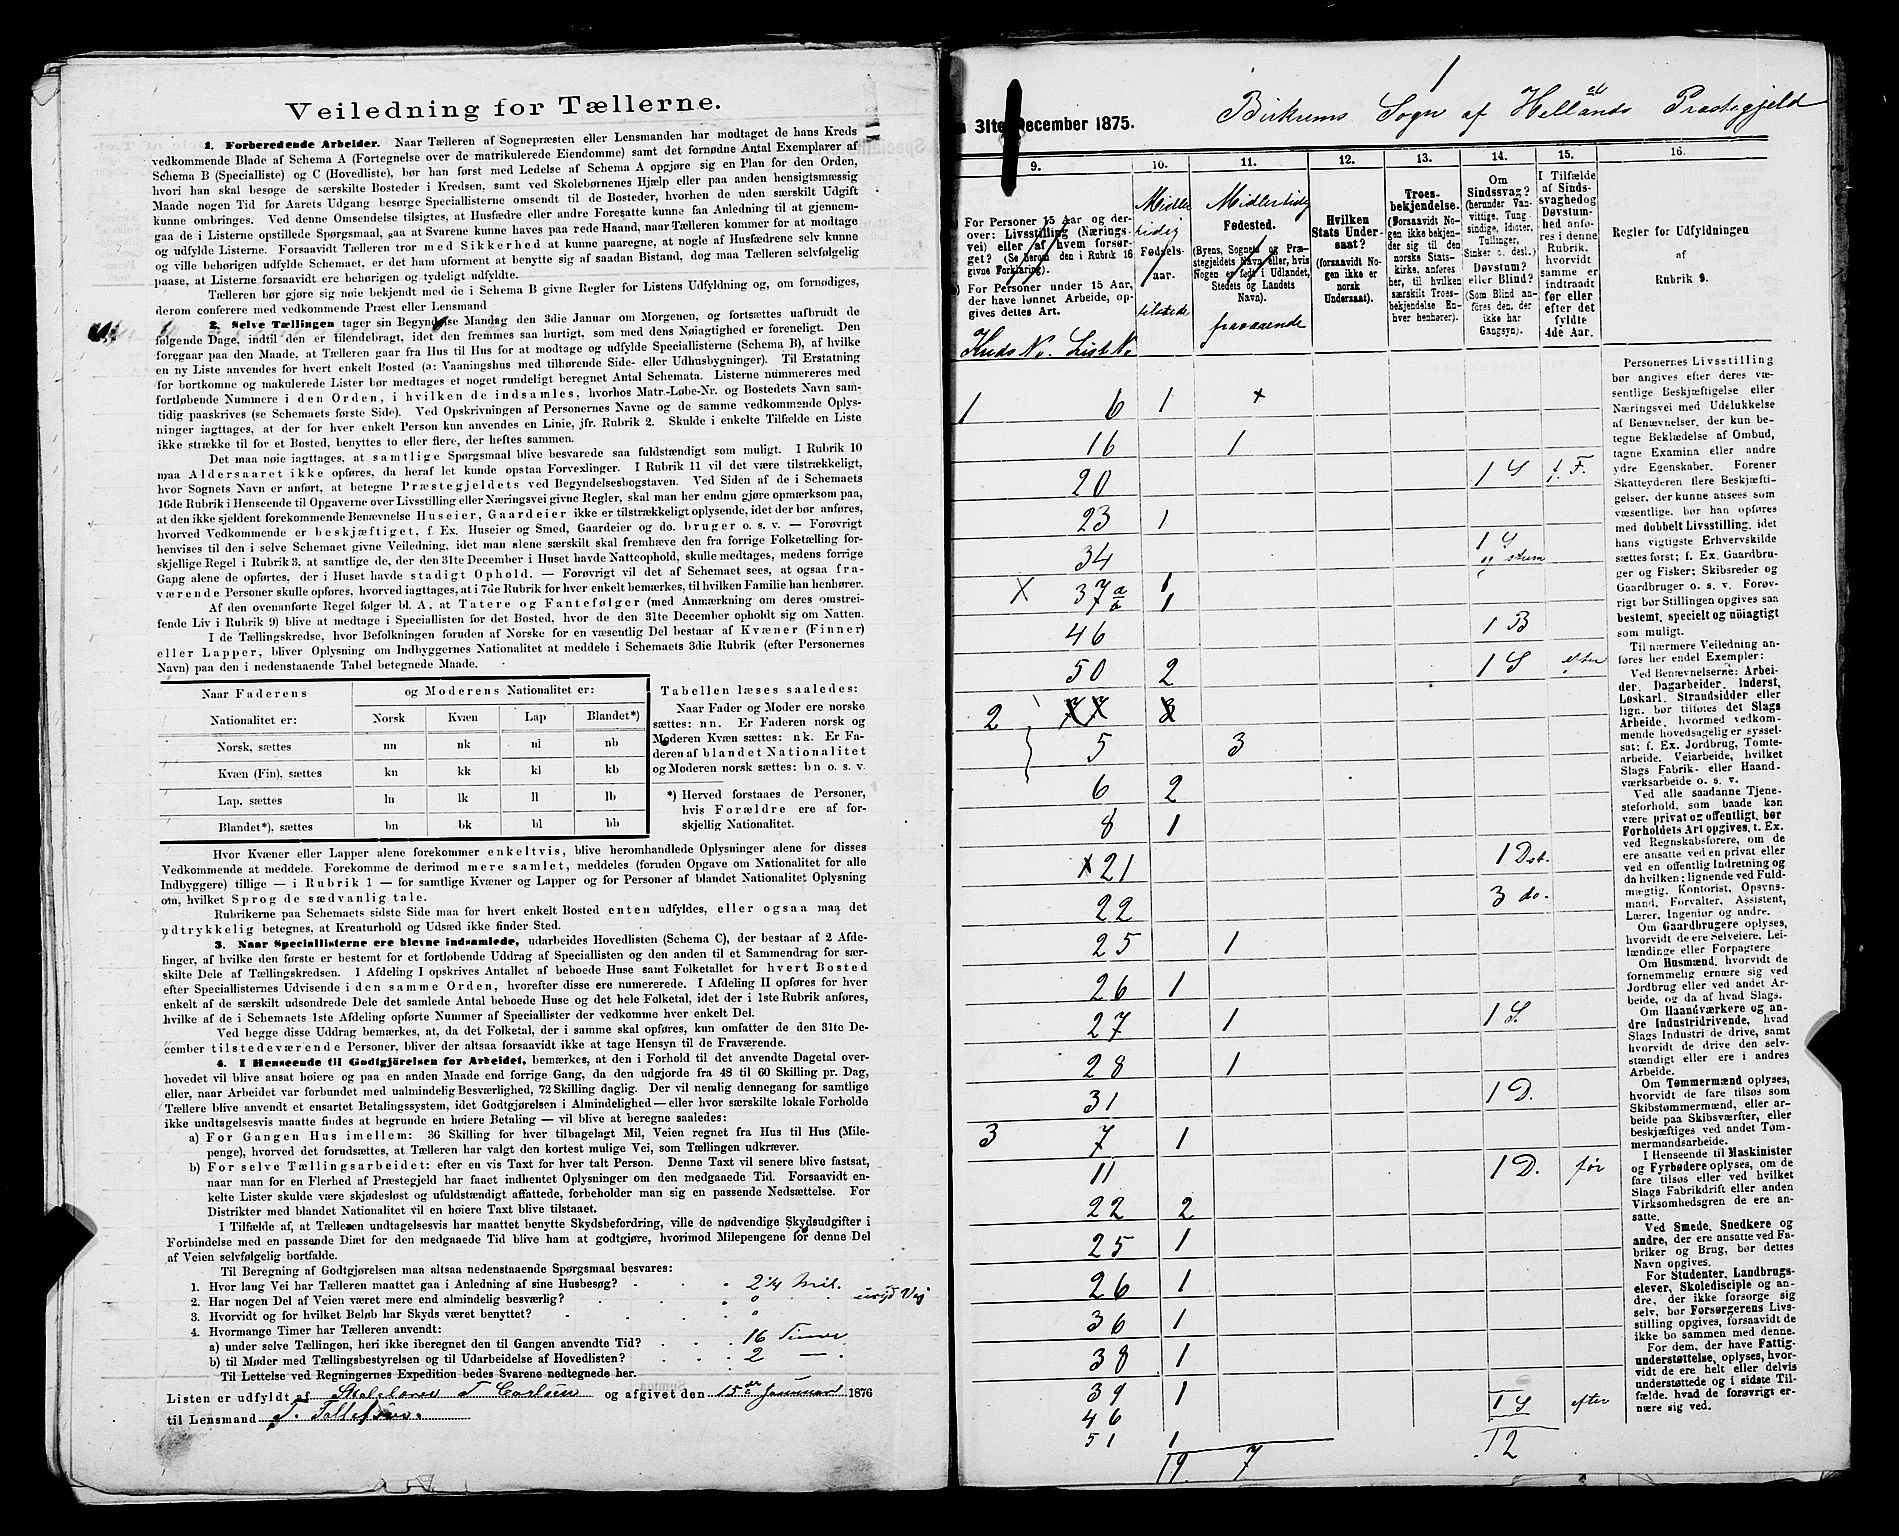 Veiledning for Tællerne.
1. Forberedende Arbeider. Naar Tælleren af Sognepræsten eller Lensmanden har modtaget de hans Kreds
vedkommende Blade af Schema A (Fortegnelse over de matrikulerede Eiendomme) samt det fornødne Antal Exemplarer af
Schema B (Specialliste) og C (Hovedliste), bør han først med Ledelse af Schema A opgjøre sig en Plan for den Orden,
hvori han skal besøge de særskilte Bosteder i Kredsen, samt ved Skolebørnenes Hjælp eller paa anden hensigtsmæssig
Maade nogen Tid før Aarets Udgang besørge Speciallisterne omsendt til de Bosteder, hvorhen de uden særskilt Udgift
kunne ombringes. Ved denne Omsendelse tilsigtes, at Husfædre eller andre Foresatte kunne faa Anledning til at gjennem-
gaa de i Listerne opstillede Spørgsmaal, saa at Svarene kunne haves paa rede Haand, naar Tælleren kommer for at modtage
og udfylde Listerne. Forsaavidt Tælleren tror med Sikkerhed at kunne paaregne, at nogle af Husfædrene selv kunne
og ville behørigen udfylde Schemaet, er det ham uforment at benytte sig af saadan Bistand, dog maa Tælleren selvfølgelig
paase, at Listerne forsaavidt ere behørigen og tydeligt udfyldte.
Tælleren bør gjøre sig nøie bekjendt med de i Schema B givne Regler for Listens Udfyldning og, om fornødiges,
derom conferere med vedkommende Præst eller Lensmand
2. Selve Tællingen tager sin Begyndelse Mandag den 3die Januar om Morgenen, og fortsættes uafbrudt de
følgende Dage, indtil den er tilendebragt, idet den fremmes saa hurtigt, som med dens Nøiagtighed er foreneligt. Den
foregaar paa den Maade, at Tælleren gaar fra Hus til Hus for at modtage og udfylde Speciallisterne (Schema B), af hvilke
en ny Liste anvendes for hvert enkelt Bosted (ɔ: Vaaningshus med tilhørende Side- eller Udhusbygninger). Til Erstatning
for bortkomne og makulerede Lister bør medtages et noget rundeligt beregnet Antal Schemata. Listerne nummereres med
fortløbende Nummere i den Orden, i hvilken de indsamles, hvorhos Matr.-Løbe-Nr. og Bostedets Navn sam-
tidig paaskrives (se Schemaets første Side). Ved Opskrivningen af Personernes Navne og de samme vedkommende Oplys-
ninger iagttages, at der for hver enkelt Person kun anvendes en Linie, jfr. Rubrik 2. Skulde i enkelte Tilfælde en Liste
ikke strække til for et Bosted, benyttes to eller flere, der heftes sammen.
Det maa nøie iagttages, at samtlige Spørgsmaal blive besvarede saa fuldstændigt som muligt. I Rubrik 10
maa Aldersaaret ikke opføres, da heraf let kunde opstaa Forvexlinger. I Rubrik 11 vil det være tilstrækkeligt,
hvor Sognets Navn er anført, at betegne Præstegjeldets ved Begyndelsesbogstaven. Ved Siden af de i Schemaets
16de Rubrik i Henseende til Opgaverne over Livsstilling eller Næringsvei givne Regler, skal man her endnu gjøre opmærksom paa,
at den ikke sjeldent forekommende Benævnelse Huseier, Gaardeier ikke er tilstrækkeligt oplysende, idet der bør anføres,
hvorved Vedkommende er beskjæftiget, f. Ex. Huseier og Smed, Gaardeier og do. bruger o. s. v. — Forøvrigt
henvises til den i selve Schemaet givne Veiledning, idet man alene særskilt skal fremhæve den fra forrige Folketælling for-
skjellige Regel i Rubrik 3, at samtlige de, der den 31te December i Huset havde Natteophold, skulle medtages, medens forrige
Gang alene de opførtes, der i Huset havde stadigt Ophold. — Forøvrigt vil det af Schemaet sees, at ogsaa fra-
værende Personer skulle opføres, hvorved iagttages, at i 7de Rubrik for hver enkelt bemærkes, til hvilken Familie han henhører.
Af den ovenanførte Regel følger bl. A, at Tatere og Fantefølger (med Anmærkning om deres omstrei-
fende Liv i Rubrik 9) blive at medtage i Speciallisten for det Bosted, hvor de den 31te December opholdt sig om Natten.
I de Tællingskredse, hvor Befolkningen foruden af Norske for en væsentlig Del bestaar af Kvæner (Finner)
eller Lapper, bliver Oplysning om Indbyggernes Nationalitet at meddele i Schemaets 3die Rubrik (efter Personernes
Navn) paa den i nedenstaaende Tabel betegnede Maade.
Naar Faderens Nationalitet er: | og Moderens Nationalitet er:
Norsk | Kvæn | Lap | Blandet*)
Norsk, sættes nn nk nl nb
Kvæn (Fin), sættes kn kk kl kb
Lap, sættes ln lk ll lb
Blandet*), sættes bn bk bl bb
Tabellen læses saaledes:
Naar Fader og Moder ere norske
sættes: nn. Er Faderen norsk og
Moderen Kvæn sættes: nk. Er Fa-
deren af blandet Nationalitet
og Moderen norsk sættes: bn o. s. v.
*) Herved forstaaes de Personer,
hvis Forældre ere af for-
skjellig Nationalitet.
Hvor Kvæner eller Lapper alene forekommer enkeltvis, blive heromhandlede Oplysninger alene for disses
Vedkommende at meddele. Forekomme de derimod mere samlet, meddeles (foruden Opgave om Nationalitet for alle
Indbyggere) tillige — i Rubrik 1 — for samtlige Kvæner og Lapper og for Personer af blandet Nationalitet Oplysning
om, hvilket Sprog de sædvanlig tale.
Rubrikerne paa Schemaets sidste Side maa for hvert enkelt Bosted enten udfyldes, eller ogsaa maa det
udtrykkelig betegnes, at Kreaturhold og Udsæd ikke finder Sted.
3. Naar Speciallisterne ere blevne indsamlede, udarbeides Hovedlisten (Schema C), der bestaar af 2 Afde-
linger, af hvilke den første er bestemt for et fortløbende Uddrag af Speciallisten og den anden til et Sammendrag for sær-
skilte Dele af Tællingskredsen. I Afdeling I opskrives Antallet af beboede Huse samt Folketallet for hvert Bosted
efter Speciallisternes Udvisende i den samme Orden, hvorefter disse ere numererede. I Afdeling II opføres for hver
enkelt af de særskilt udsondrede Dele det samlede Antal beboede Huse og det hele Folketal, idet der i 1ste Rubrik anføres,
hvilke af de i Schemaets 1ste Afdeling opførte Nummer af Speciallister der vedkomme hver enkelt Del.
Ved begge disse Uddrag bemærkes, at, da det Folketal, der i samme skal opføres, kun omfatter de den 31te De-
cember tilstedeværende Personer, bliver der altsaa forsaavidt ikke at tage Hensyn til de Fraværende.
4. I Henseende til Godtgjørelsen for Arbeidet, bemærkes, at den i Forhold til det anvendte Dagetal over-
hovedet vil blive ansat høiere og paa en anden Maade end forrige Gang, da den udgjorde fra 48 til 60 Skilling pr. Dag,
eller, naar Arbeidet var forbundet med ualmindelig Besværlighed, 72 Skilling daglig. Der vil nemlig dennegang for samtlige
Tællere blive anvendt et ensartet Betalingssystem, idet Godtgjørelsen i Almindelighed — eller hvor særskilte lokale Forholde
ikke undtagelsesvis maatte findes at begrunde en høiere Betaling — vil blive at beregne saaledes:
a) For Gangen Hus imellem: 36 Skilling for hver tilbagelagt Mil, Veien regnet fra Hus til Hus (Mile-
penge), hvorved det forudsættes, at Tælleren har valgt den kortest mulige Vei, som Tællingen udkræver.
b) For selve Tællingsarbeidet: efter en vis Taxt for hver talt Person. Denne Taxt vil senere blive fastsat,
naar man for en Flerhed af Præstegjeld har faaet indhentet Oplysninger om den medgaaede Tid. Forsaavidt en-
kelte Lister skulde være skjødesløst og ufuldstændigt affattede, forbeholder man sig en passende Nedsættelse. For
Distrikter med blandet Nationalitet vil en høiere Taxt blive tilstaaet.
I Tilfælde af, at Tælleren undtagelsesvis har maattet benytte Skydsbefordring, ville de nødvendige Skydsudgifter i
Forbindelse med en passende Diæt for den medgaaede Tid blive ham at godtgjøre, hvorimod Milepengene for denne Del
af Veien selvfølgelig bortfalde.
Til Beregning af Godtgjørelsen maa altsaa nedenstaaende Spørgsmaal besvares:
1. Hvor lang Vei har Tælleren maattet gaa i Anledning af sine Husbesøg? 2 1/4 Mil.
2. Har nogen Del af Veien været mere end almindelig besværlig? 0
3. Hvorvidt og for hvilket Beløb har Skyds været benyttet? 0
4. Hvormange Timer har Tælleren anvendt:
a) under selve Tællingen, heri ikke iberegnet den til Gangen anvendte Tid? 16 Timer
b) til Møder med Tællingsbestyrelsen og til Udarbeidelse af Hovedlisten? 2 —
Til Lettelse ved Regningernes Expedition bedes Svarene nedtegnede her.
Listen er udfyldt af Skolelærer T Carlsen og afgivet den 15de Januar 1876
til Lensmand T. Tollefsen.
1
31te December 1875. Birkrems Sogn af Hellands Præstegjeld
9. 10. 11. 12. 13. 14. 15. 16.
For Personer 15 Aar og der-
over: Livsstilling (Nærings-
vei) eller af hvem forsør-
get? (Se herom den i Rubrik 16
givne Forklaring).
For Personer under 15 Aar,
der have lønnet Arbeide, op-
gives dettes Art.
Kreds No. Liste No.
Midler
tidig
Fødsels-
aar.
tilstede
Midlertidig
Fødested.
(Byens, Sognets og Præ-
stegjeldets Navn eller, hvis
Nogen er født i Udlandet,
Stedets og Landets
Navn).
fraværende
Hvilken
Stats Under-
saat?
(forsaavidt No-
gen ikke er
norsk
Undersaat).
Troes-
bekjendelse.
(Forsaavidt No-
gen ikke bekjen-
der sig til den
norske Stats-
kirke, anføres
her, til hvilken
særskilt Troes-
bekjendelse En-
hver henhører).
Om
Sindssvag?
(herunder Van-
vittige, Tung-
sindige, Idioter,
Tullinger,
Sinker o. desl.).
Døvstum?
eller Blind?
(Som Blind an-
føres den, der
ikke har
Gangsyn).
I Tilfælde
af Sinds-
svaghed og
Døvstum-
hed anfø-
res i denne
Rubrik,
hvorvidt
samme er
indtraadt
før eller
efter det
fyldte
4de Aar.
Regler for Udfyldningen
af
Rubrik 9.
1 6 1 x
16 1
20 1 S f. F.
23 1
34 1 S og stum
X 37 a 1
b 1
46 1 B
50 2 1 S efter
2 77 3
5 3
6 2
8 1
x 21 1 Dst.
22 3 do.
25 1
26 1
27 1 1 S.
28 1
31 1 D.
3 7 1
11 1 D. før
22 2
25 1
26 1
36 1
38 1
39 1 1 S efter
46
51 1
19. 7 12
Personernes Livsstilling
bør angives efter deres væ-
sentlige Beskjæftigelse eller
Næringsvei med Udelukkelse
af Benævnelser, der kun be-
tegne Beklædelse af Ombud,
tagne Examina eller andre
ydre Egenskaber. Forener
Skatteyderen flere Beskjæfti-
gelser, der kunne ansees som
væsentlige, bør han opføres
med dobbelt Livsstilling, idet
hans vigtigste Erhvervskilde
sættes først; f. Ex. Gaardbru-
ger og Fisker; Skibsreder og
Gaardbruger o. s. v. Forøv-
rigt bør Stillingen opgives saa
bestemt, specielt og nøiagtigt
som muligt.
Til nærmere Veiledning an-
føres her endel Exempler:
Ved Benævnelserne: Arbei-
der, Dagarbeider, Inderst,
Løskarl, Strandsidder eller
lign. bør tilføies det Slags
Arbeide, hvormed vedkom-
mende hovedsagelig er syssel-
sat; f. Ex. Jordbrug, Tomte-
arbeide, Veiarbeide, hvilket
Slags Fabrik- eller Haand-
værksarbeide o. s. v.
Ved alle saadanne Tjene-
steforhold, som baade kan
være privat og offentligt, bør
Forholdets Art opgives, t. Ex.
ved Regnskabsførere, om de
ere ansatte ved en privat eller
ved en offentlig Indretning og
da hvilken; lignende ved Fuld-
mægtig, Kontorist, Opsyns-
mand, Forvalter, Assistent,
Lærer, Ingeniør og andre.
Om Gaardbrugere oplyses,
hvorvidt de ere Selveiere, Lei-
lændinge eller Forpagtere.
Om Husmænd, hvorvidt de
fornemmelig ernære sig ved
Jordbrug eller ved andet Ar-
beide, og da af hvad Slags.
Om Haandværkere og an-
dre Industridrivende, hvad
Slags Industri de drive, samt
hvorvidt de drive den selv-
stændigt eller ere i andres
Arbeide.
Om Tømmermænd oplyses,
hvorvidt de fare tilsøs som
Skibstømmermænd, eller ar-
beide paa Skibsværfter, eller
beskjæftiges ved andet Tøm-
mermandsarbeide.
I Henseende til Maskinister
og Fyrbødere oplyses, om de
fare tilsøs eller ved hvilket
Slags Fabrikdrift eller anden
Virksomhedsgren de ere an-
satte.
Ved Smede, Snedkere og
andre, der ere ansatte ved Fa-
briker og Brug, bør dettes
Navn opgives.
For Studenter, Landbrugs-
elever, Skoledisciple og an-
dre, der ikke forsørge sig
selv, bør Forsørgerens Livs-
stilling opgives, forsaavidt de
ikke bo sammen med denne.
For dem, der have Fattig-
understøttelse, oplyses, hvor-
vidt de ere helt eller delvis
understøttede og i sidste Til-
fælde, hvad de forøvrigt er-
nære sig ved.